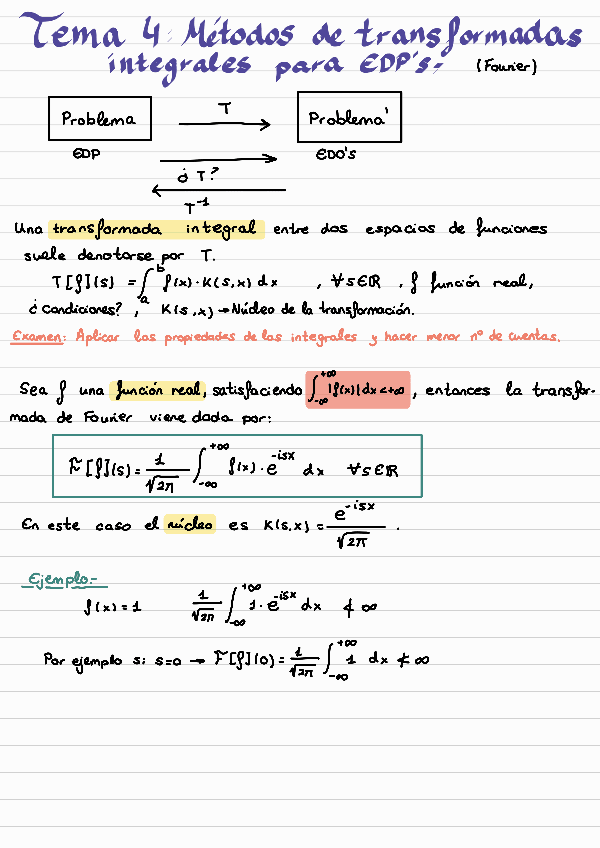 Tema 4: Métodos de transformadas
integrales para EDP's.- (Fourier)
Problema T Problema'
EDP EDO'S
¿T?
T⁻¹
Una transformada integral entre dos espacios de funciones
suele denotarse por T.
T[f](s) = ∫_a^b f(x)·K(s,x) dx , ∀s∈ℝ, f función real,
¿condiciones?, K(s,x) → Núcleo de la transformación.
Examen: Aplicar las propiedades de las integrales y hacer menor nº de cuentas.
Sea f una función real, satisfaciendo ∫_{-∞}^{+∞} |f(x)| dx < +∞, entonces la transfor-
mada de Fourier viene dada por:
F[f](s) = 1/√2π ∫_{-∞}^{+∞} f(x)·e^{-isx} dx ∀s∈ℝ
En este caso el núcleo es K(s,x) = e^{-isx}/√2π .
Ejemplo.-
f(x)=1 1/√2π ∫_{-∞}^{+∞} 1·e^{-isx} dx ≮ ∞
Por ejemplo si s=0 → F[f](0) = 1/√2π ∫_{-∞}^{+∞} 1 dx ≮ ∞